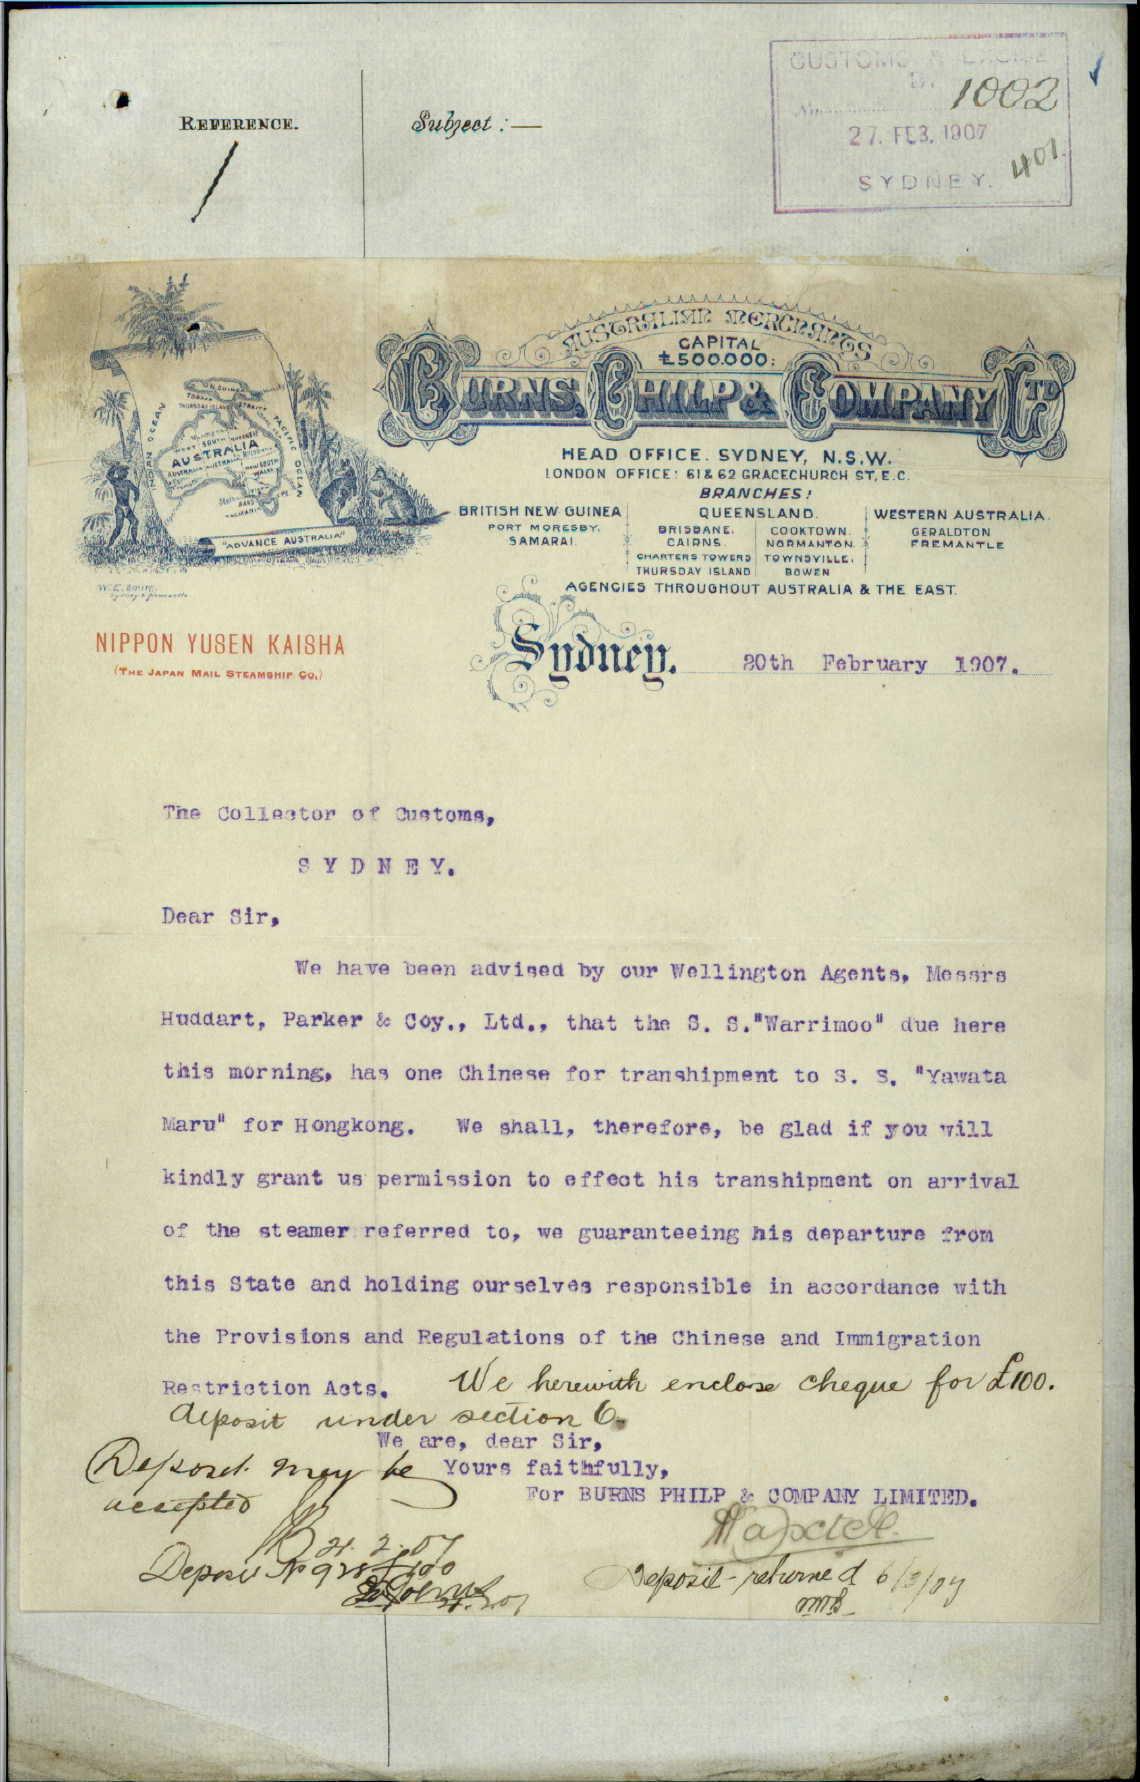 REFERENCE.
Subject:—
CUSTOMS
1002
27. FEB. 1907
SYDNEY.
401.
AUSTRALIAN MERCHANTS
CAPITAL
£500.000:
BURNS, PHILP & COMPANY LTD
HEAD OFFICE. SYDNEY, N.S.W.
LONDON OFFICE: 61 & 62 GRACECHURCH ST, E.C.
BRANCHES:
BRITISH NEW GUINEA
PORT MORESBY.
SAMARAI.
QUEENSLAND.
BRISBANE.
CAIRNS.
CHARTERS TOWERS
THURSDAY ISLAND
COOKTOWN.
NORMANTON.
TOWNSVILLE.
BOWEN
WESTERN AUSTRALIA.
GERALDTON
FREMANTLE
AGENCIES THROUGHOUT AUSTRALIA & THE EAST.
INDIAN OCEAN
PACIFIC OCEAN
AUSTRALIA
"ADVANCE AUSTRALIA"
NIPPON YUSEN KAISHA
(THE JAPAN MAIL STEAMSHIP CO.)
Sydney. 20th February 1907.
The Collector of Customs,
SYDNEY.
Dear Sir,
We have been advised by our Wellington Agents, Messrs
Huddart, Parker & Coy., Ltd., that the S. S."Warrimoo" due here
this morning, has one Chinese for transhipment to S. S. "Yawata
Maru" for Hongkong. We shall, therefore, be glad if you will
kindly grant us permission to effect his transhipment on arrival
of the steamer referred to, we guaranteeing his departure from
this State and holding ourselves responsible in accordance with
the Provisions and Regulations of the Chinese and Immigration
Restriction Acts. We herewith enclose cheque for £100.
deposit under section 6.
We are, dear Sir,
Yours faithfully,
For BURNS PHILP & COMPANY LIMITED.
Deposit may be
accepted
21.2.07
Deposit No 928 £100
Deposit returned 6/3/07